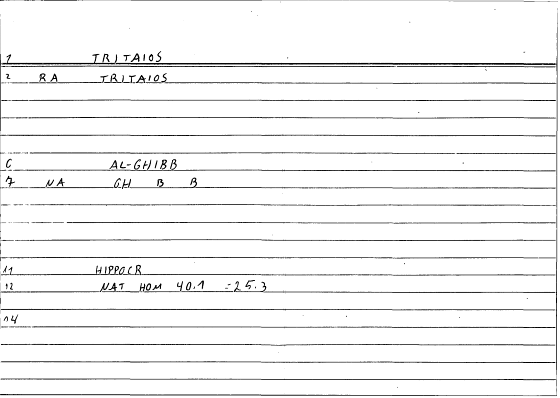 1 TRITAIOS
2 RA TRITAIOS
6 AL-GHIBB
7 NA GH B B
11 HIPPOCR
12 NAT HOM 40.1 =25.3
14